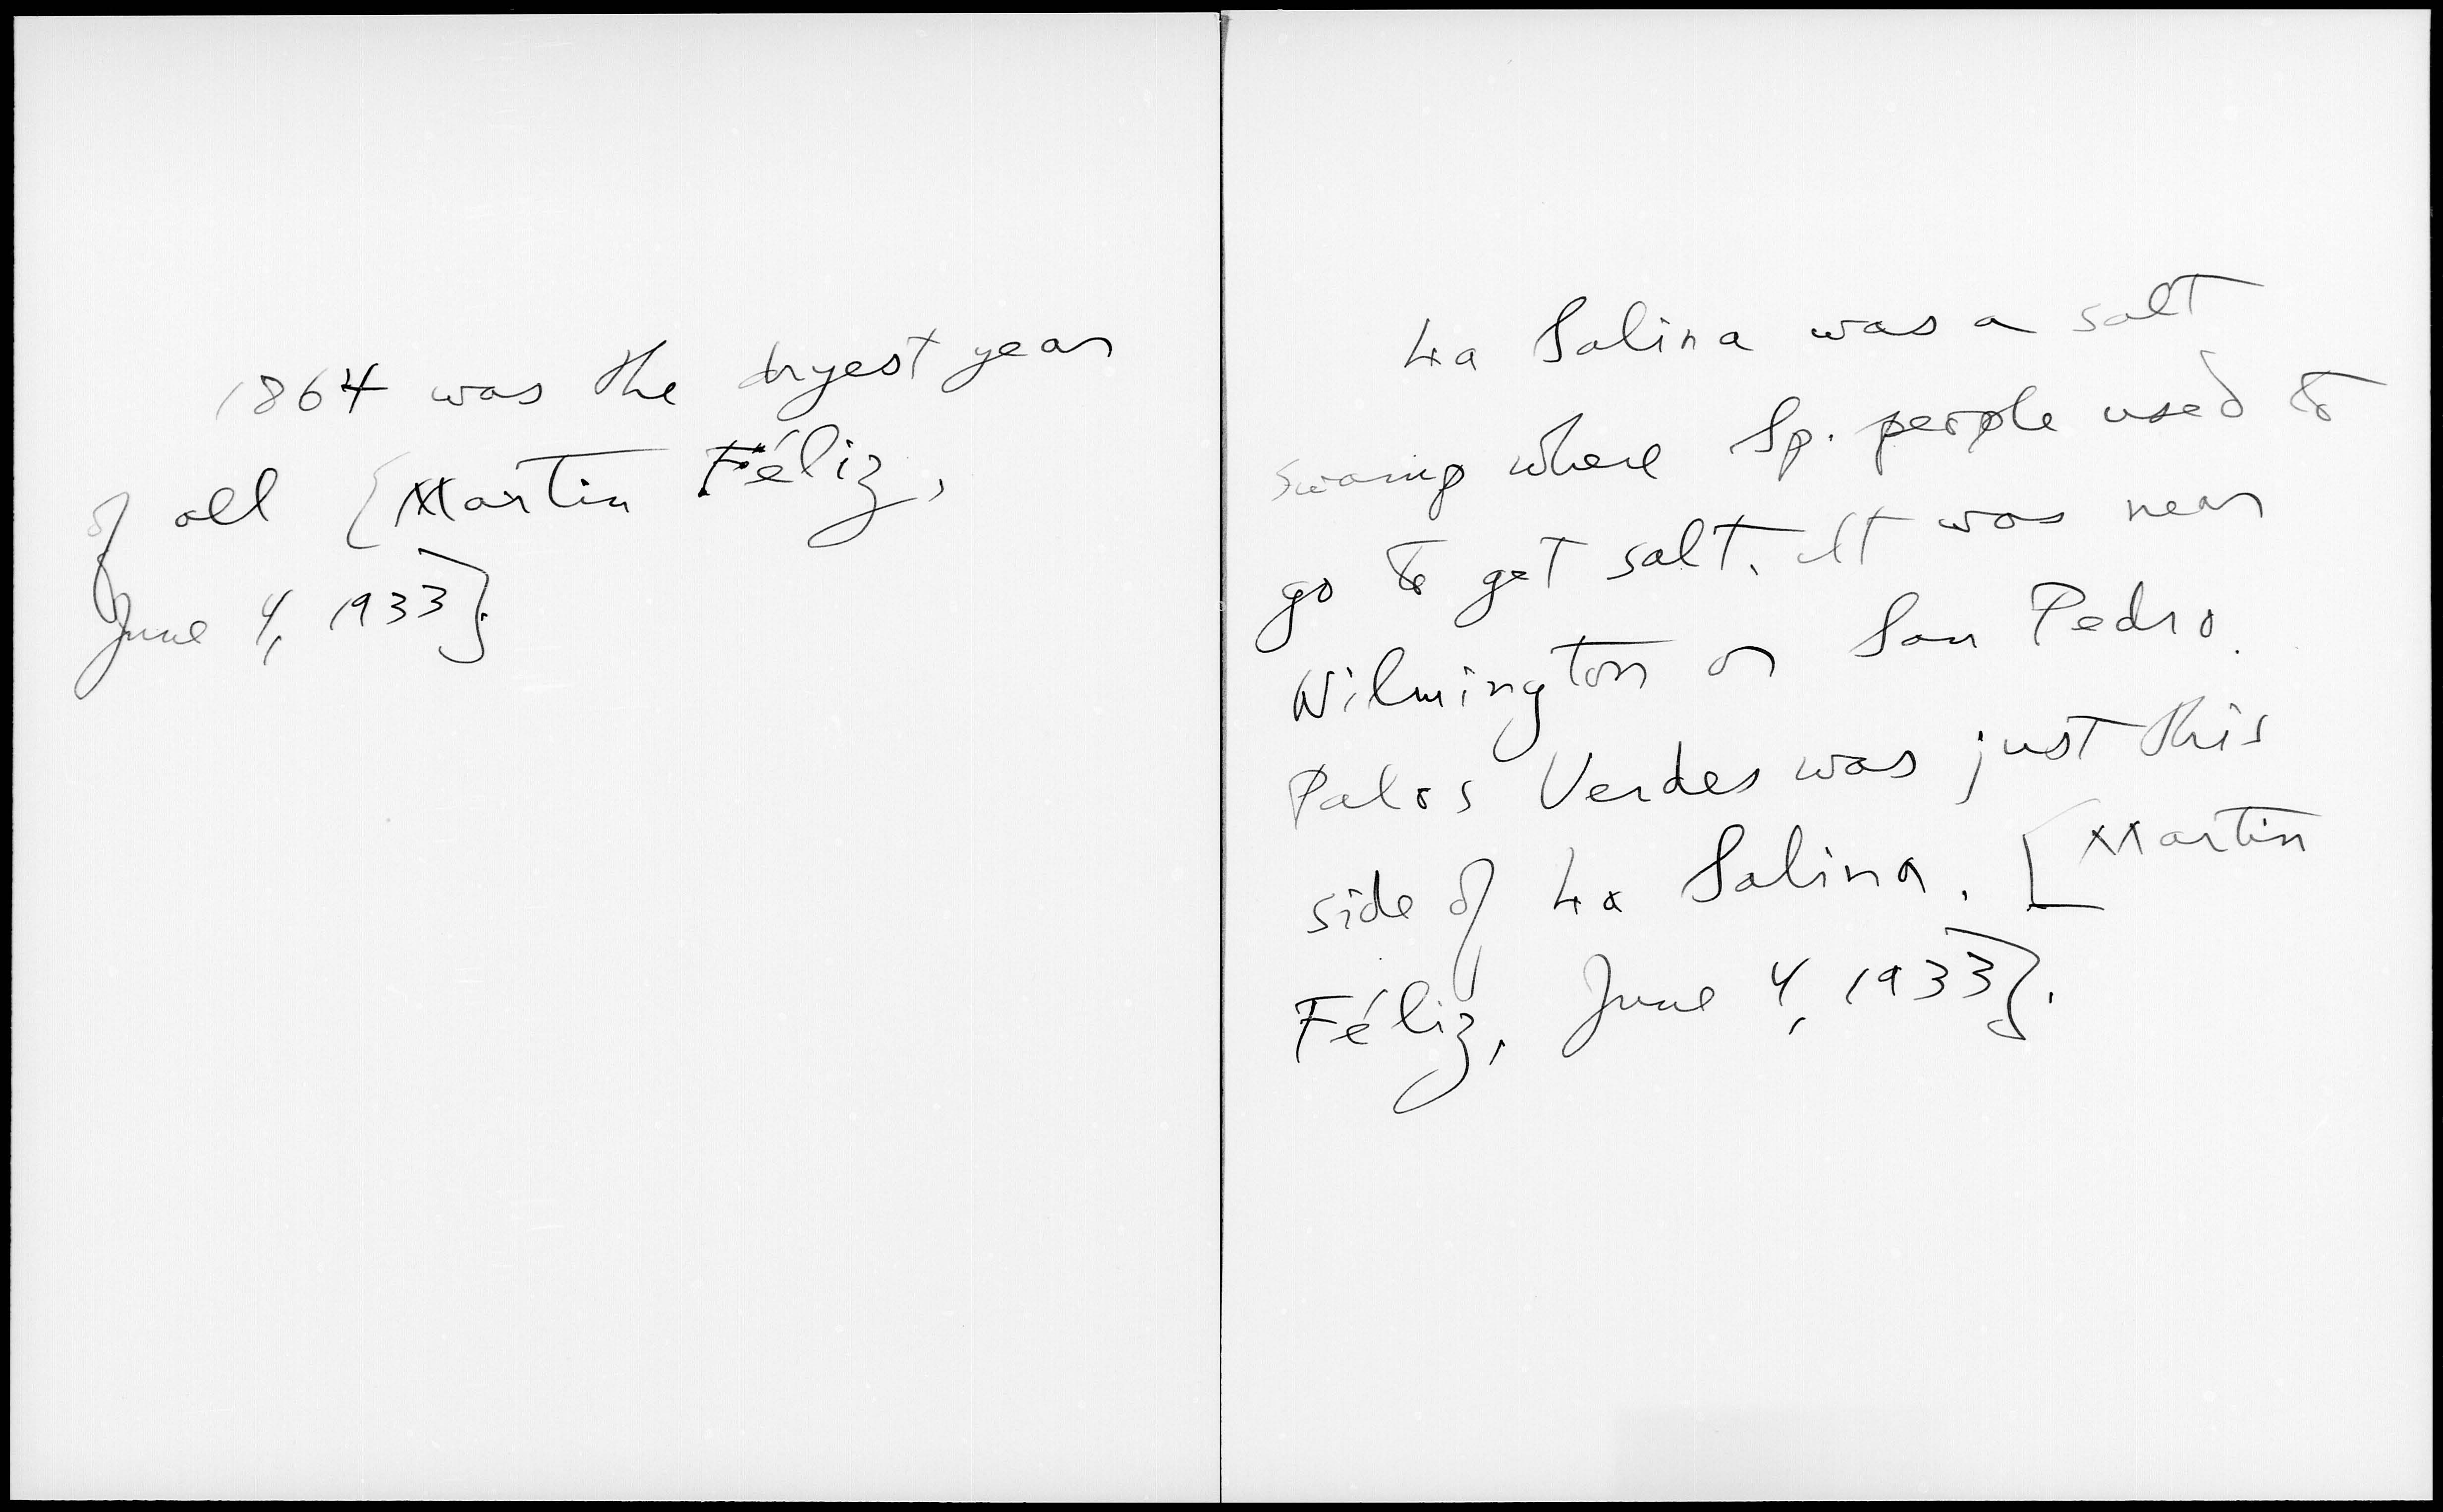 1864 was the dryest year
of all [Martin Féliz,
June 4, 1933].
La Salina was a salt
swamp where Sp. people used to
go to get salt. It was near
Wilmington or San Pedro.
Palos Verdes was just this
side of La Salina. [Martin
Féliz, June 4, 1933].